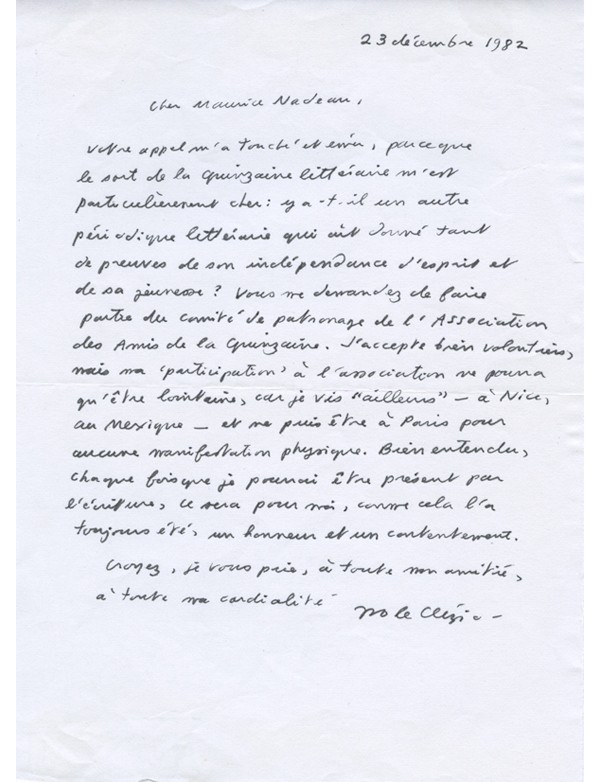 23 décembre 1982
Cher Maurice Nadeau,
Votre appel m'a touché et ému, parce que
le sort de la Quinzaine littéraire m'est
particulièrement cher : y a-t-il un autre
périodique littéraire qui ait donné tant
de preuves de son indépendance d'esprit et
de sa jeunesse ? Vous me demandez de faire
partie du comité de patronage de l'Association
des Amis de la Quinzaine. J'accepte bien volontiers,
mais ma 'participation' à l'association ne pourra
qu'être lointaine, car je vis "ailleurs" – à Nice,
au Mexique – et ne puis être à Paris pour
aucune manifestation physique. Bien entendu,
chaque fois que je pourrai être présent par
l'écriture, ce sera pour moi, comme cela l'a
toujours été, un honneur et un contentement.
Croyez, je vous prie, à toute mon amitié,
à toute ma cordialité
JMG le Clézio –